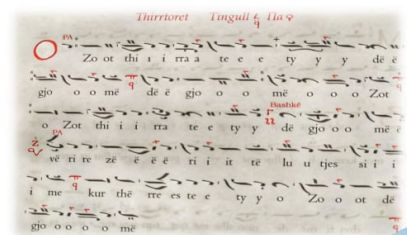 Thirrtoret Tingull Πα
ΠΑ
Zo ot thi ı i rra a te e e ty y y dë ë
gjo o o më dë ë gjo o o më o o o Zot
Bashkë
o Zot thi i i rra te e ty y dë gjo o o më ë
ΠΑ
vë ti re zë ë ë ë ri i it të lu u tjes si i i
i me kur thë rre es te e ty y o Zo o ot dë
gjo o o o o më